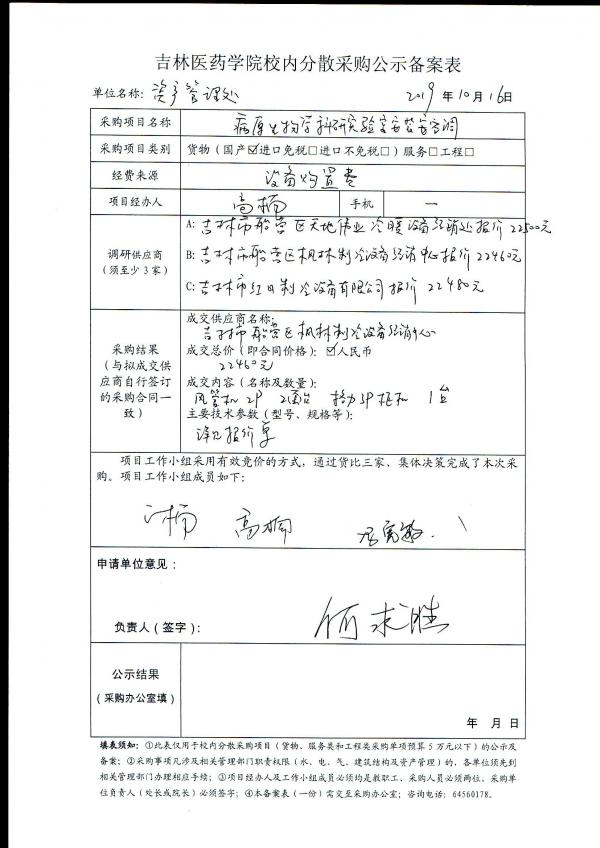 吉林医药学院校内分散采购公示备案表
单位名称：资产管理处 2019年10月16日
采购项目名称 病原生物学科研实验室安装空调
采购项目类别 货物（国产☑进口免税□进口不免税□）服务□工程□
经费来源 设备购置费
项目经办人 高楠 手机 —
调研供应商
（须至少3家）
A: 吉林市船营区天地伟业冷暖设备经销处报价22500元
B: 吉林市船营区枫林制冷设备经销中心报价22460元
C: 吉林市红日制冷设备有限公司报价22480元
采购结果
（与拟成交供
应商自行签订
的采购合同一
致）
成交供应商名称：
吉林市船营区枫林制冷设备经销中心
成交总价（即合同价格）：☑人民币
22460元
成交内容（名称及数量）：
风管机2P 2台 格力3P柜机 1台
主要技术参数（型号、规格等）：
详见报价单
项目工作小组采用有效竞价的方式，通过货比三家、集体决策完成了本次采
购。项目工作小组成员如下：
高楠
申请单位意见：
负责人（签字）： 何求胜
公示结果
（采购办公室填）
年 月 日
填表须知：①此表仅用于校内分散采购项目（货物、服务类和工程类采购单项预算5万元以下）的公示及
备案；②采购事项凡涉及相关管理部门职责权限（水、电、气、建筑结构及资产管理）的，各单位须先到
相关管理部门办理相应手续；③项目经办人及工作小组成员必须均是教职工、采购人员必须两位、采购单
位负责人（处长或院长）必须签字；④本备案表（一份）需交至采购办公室；咨询电话：64560178。